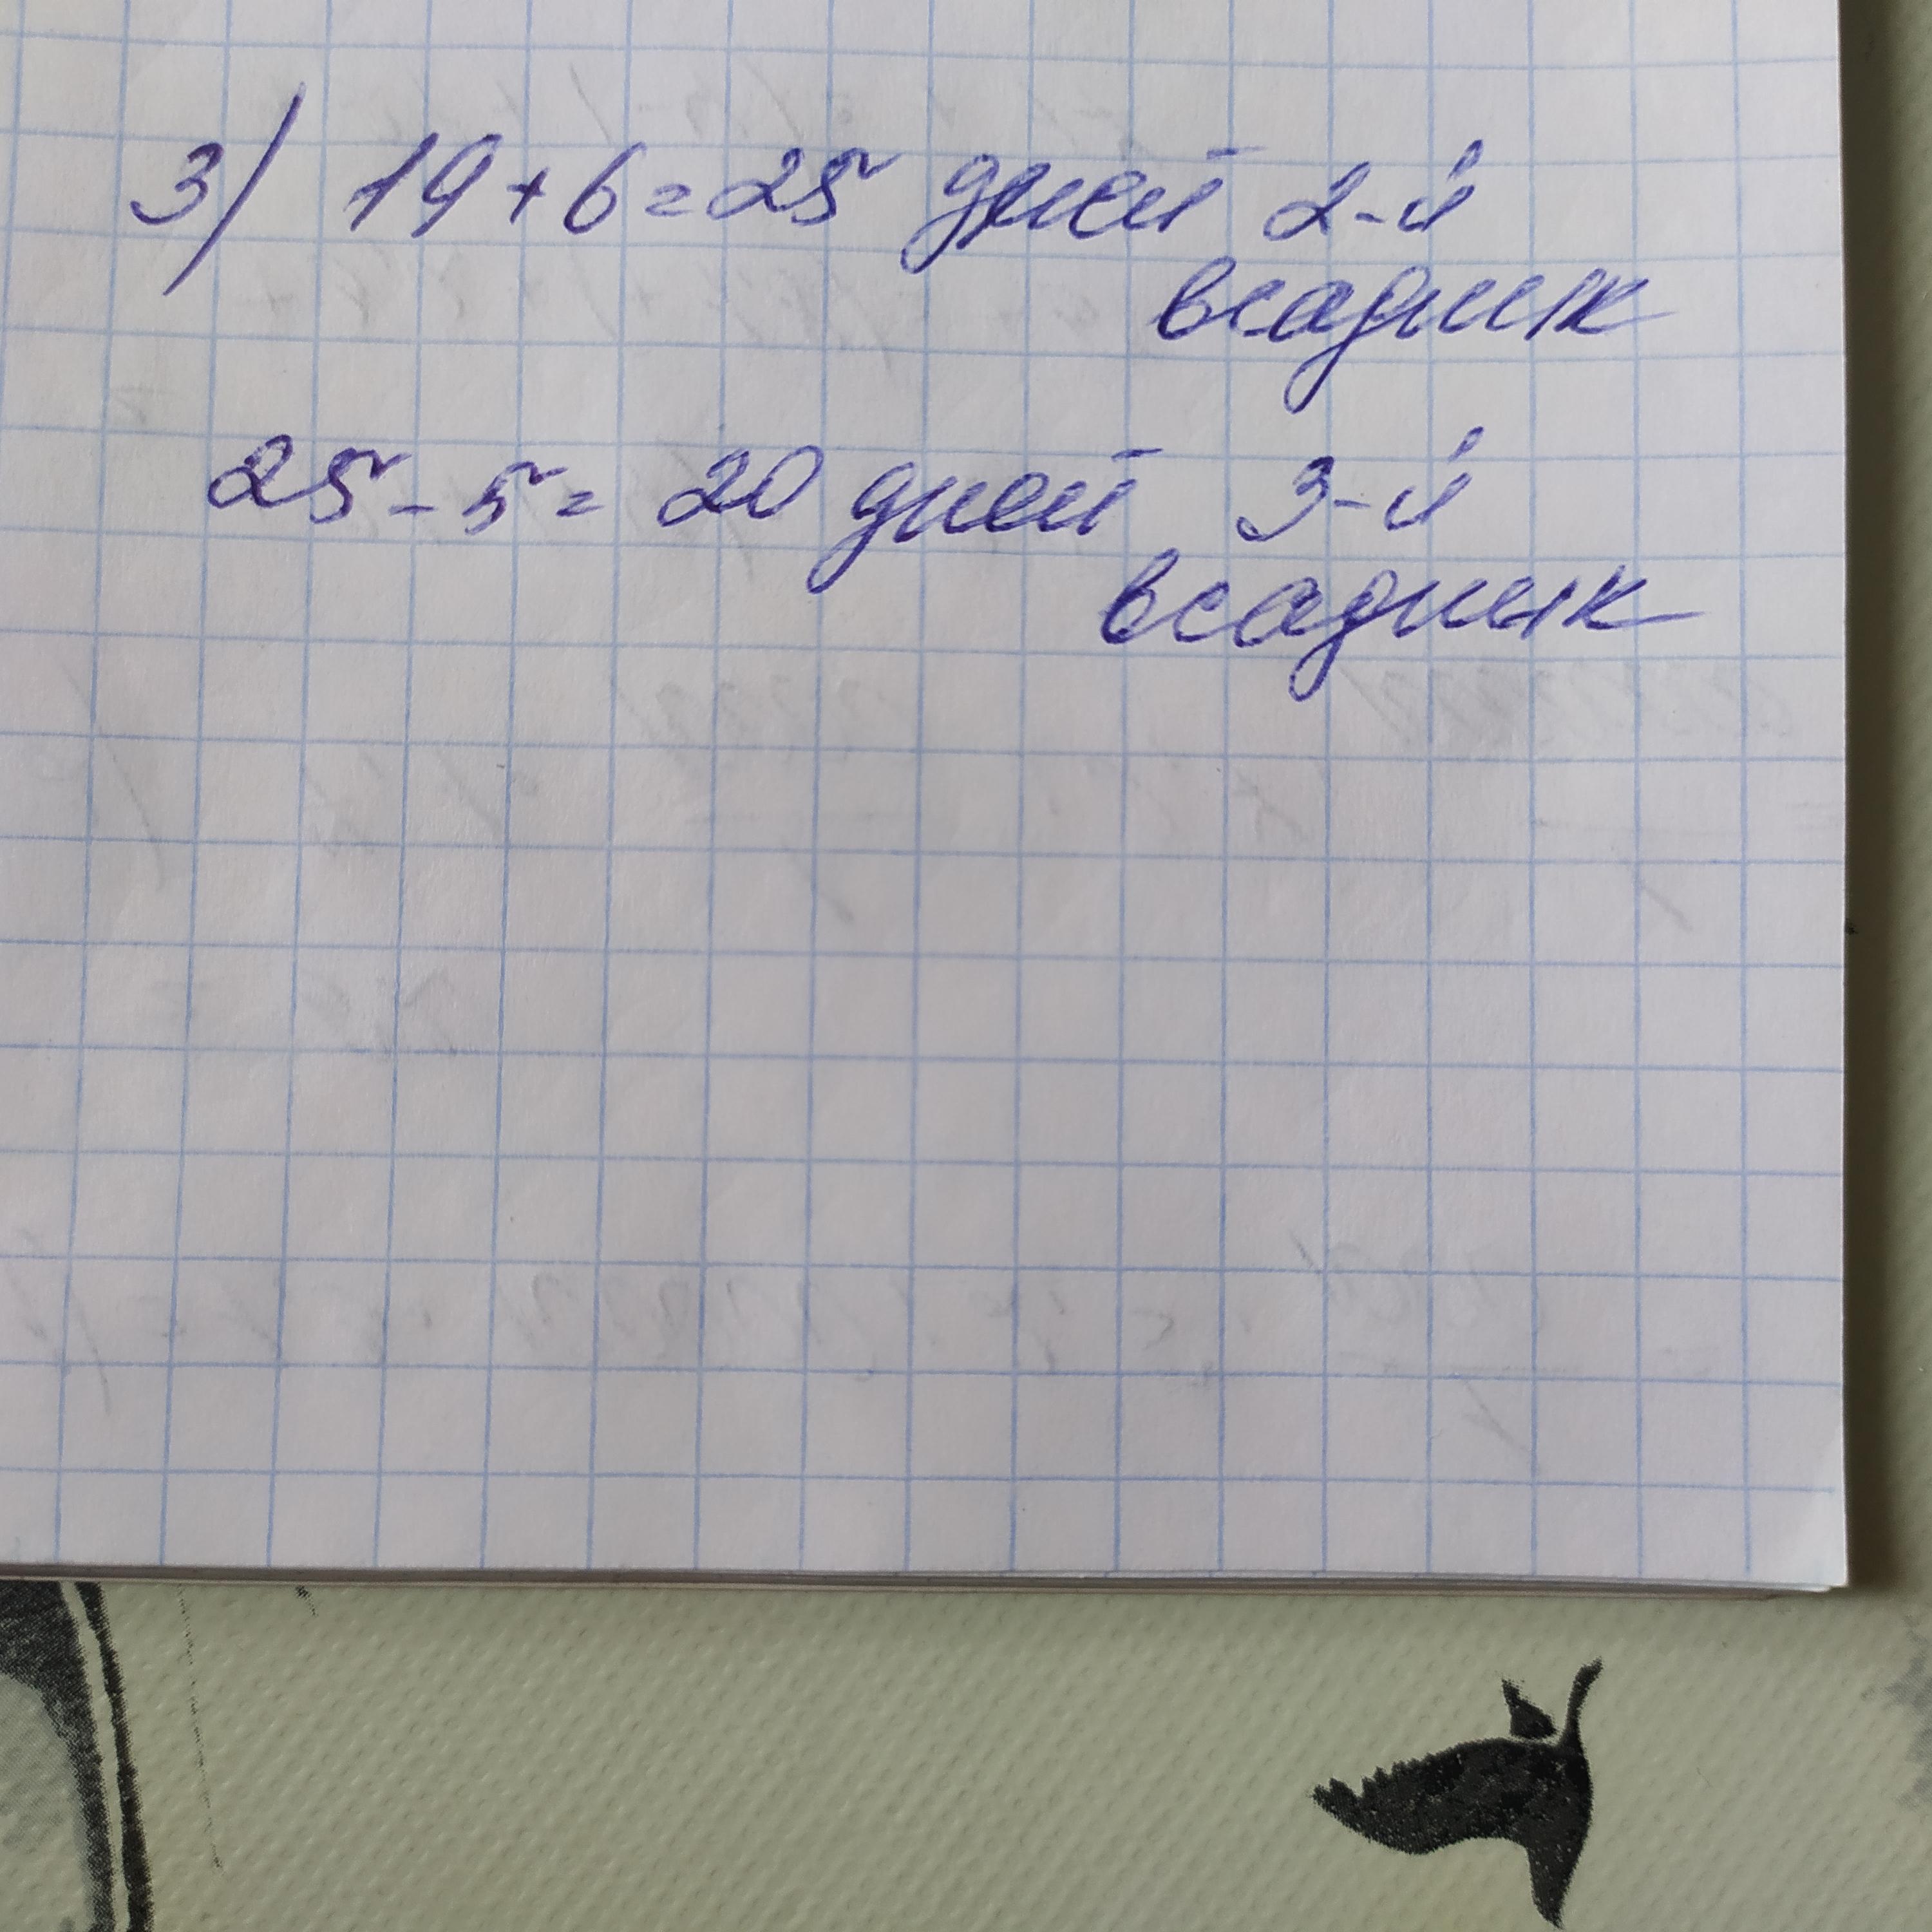 3) 19+6=25 дней 2-й
всадник
25-5=20 дней 3-й
всадник